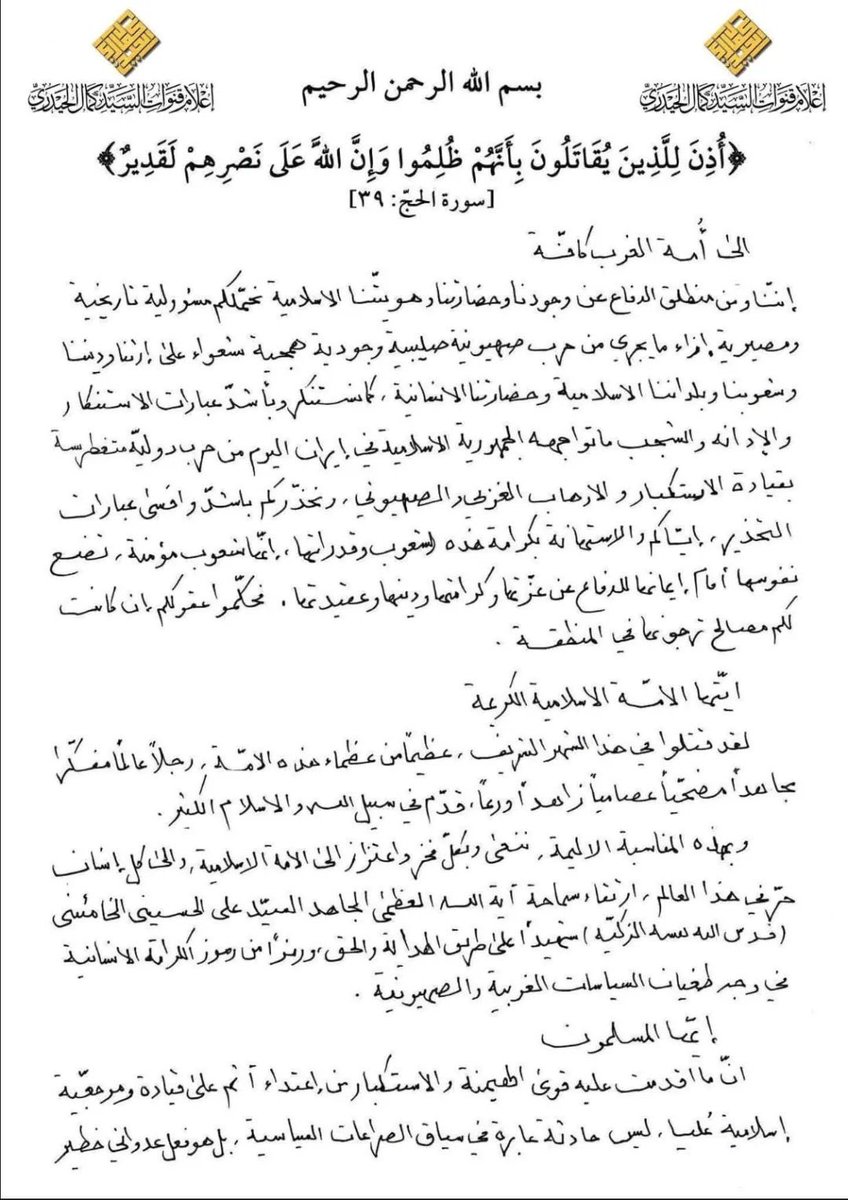 إعلام قنوات السيد كمال الحيدري
إعلام قنوات السيد كمال الحيدري
بسم الله الرحمن الرحيم
﴿أُذِنَ لِلَّذِينَ يُقَاتَلُونَ بِأَنَّهُمْ ظُلِمُوا وَإِنَّ اللهَ عَلَى نَصْرِهِمْ لَقَدِيرٌ﴾
[سورة الحجّ: ٣٩]
الى أُمة الغرب كافّة
إننّا ومن منطلق الدفاع عن وجودنا وحضارتنا وهويتّنا الاسلامية نحمّلكم مسؤولية تاريخية
ومصيرية إزاء ما يجري من حرب صهيونية صليبية وجودية همجية شعواء على إرثنا وديننا
وشعوبنا وبلداننا الاسلامية وحضارتنا الانسانية، كما نستنكر وبأشدّ عبارات الاستنكار
والإدانه والشجب ما تواجهه الجمهورية الاسلامية في إيران اليوم من حرب دوليّة متغطرسة
بقيادة الاستكبار والارهاب الغربي والصهيوني، ونحذّركم باشدّ واقسى عبارات
التحذير، إيّاكم والاستهانة بكرامة هذه الشعوب وقدراتها، إنّها شعوب مؤمنة، تضع
نفوسها أمام إيمانها للدفاع عن عزّتها وكرامتها ودينها وعقيدتها. فحكّموا عقولكم إن كانت
لكم مصالح ترجونها في المنطقة.
ايتّها الامّة الاسلامية الكريمة
لقد قتلوا في هذا الشهر الشريف، عظيماً من عظماء هذه الامّة، رجلاً عالماً مفكّرا
مجاهداً مضحّياً عصامياً زاهداً ورعاً، قدّم في سبيل الله والاسلام الكثير.
وبهذه المناسبة الاليمة، ننعى وبكلّ فخر واعتزاز الى الأمة الاسلامية، والى كل إنسان
حرّ في هذا العالم، ارتقاء سماحة آية الله العظمى المجاهد السيّد علي الحسيني الخامنئي
(قدس الله نفسه الزكيّه) شهيداً على طريق الهداية والحق، ورمزاً من رموز الكرامة الانسانية
في وجه طغيان السياسات الغربية والصهيونية.
إيّها المسلمون
انّ ما أقدمت عليه قوى الهيمنة والاستكبار من إعتداء آثم على قيادة ومرجعيّة
إسلامية عُليا، ليس حادثة عابرة في سياق الصراعات السياسية، بل هو فعل عدواني خطير